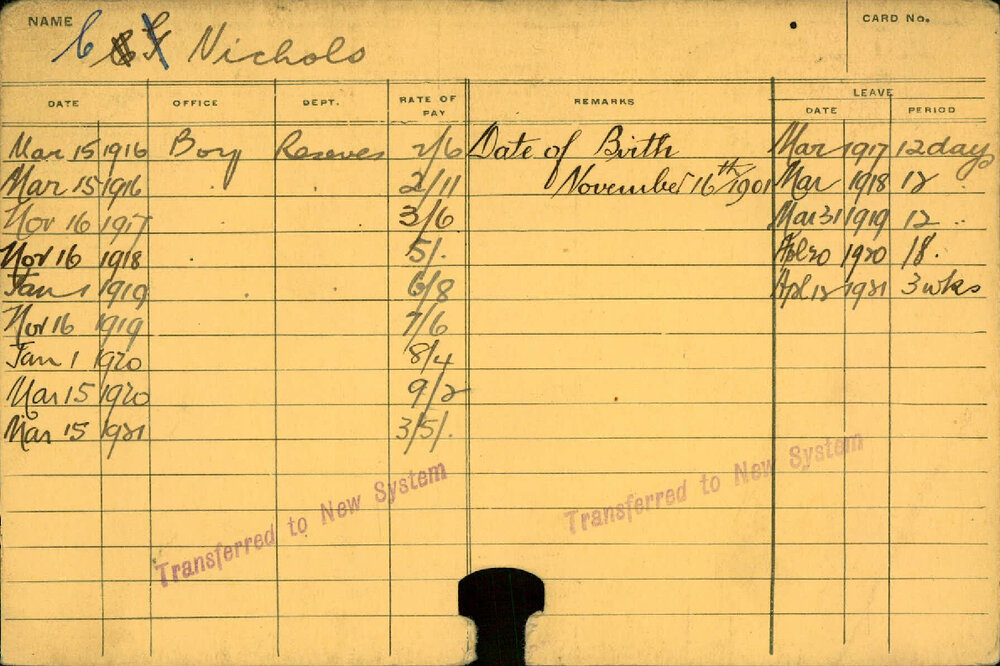 NAME C Nichols CARD No.
LEAVE
DATE OFFICE DEPT. RATE OF PAY REMARKS DATE PERIOD
Mar 15 1916 Boy Reserves 2/6 Date of Birth Mar 1917 12 days
Mar 15 1916 . . 2/11 November 16th/1901 Mar 1918 12
Nov 16 1917 3/6 Mar 31 1919 12 ..
Nov 16 1918 5/. Apl 20 1920 18.
Jan 1 1919 . . 6/8 Apl 12 1921 3 wks
Nov 16 1919 7/6
Jan 1 1920 8/4
Mar 15 1920 9/2
Mar 15 1921 3/5/.
Transferred to New System
Transferred to New System